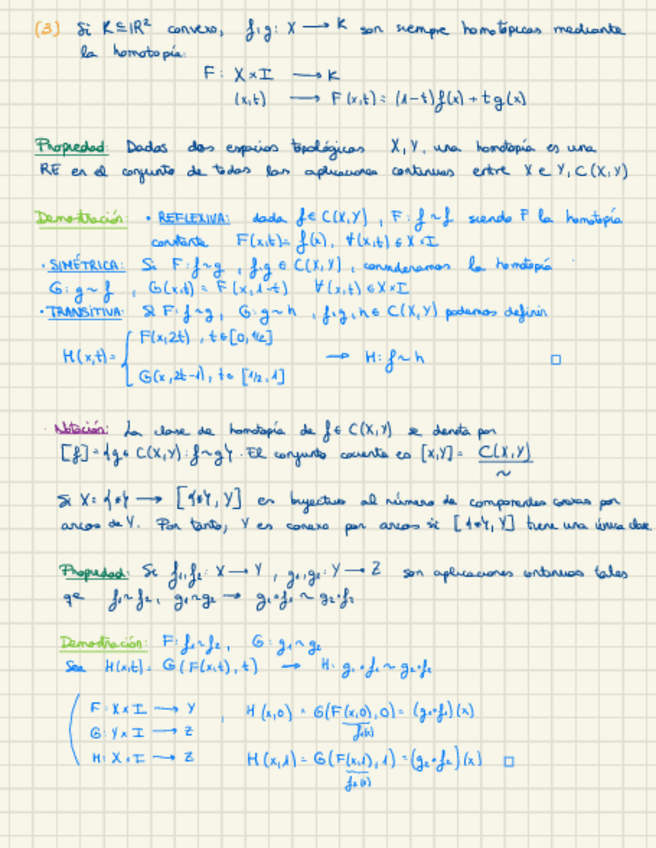 (3) Si K⊆ℝ² convexo, f,g: X → K son siempre homotópicas mediante
la homotopía:
F: X×I → K
(x,t) → F(x,t) = (1-t)f(x) + t g(x)
Propiedad: Dados dos espacios topológicos X, Y, una homotopía es una
RE en el conjunto de todas las aplicaciones continuas entre X e Y, C(X,Y)
Demostración: · REFLEXIVA: dada f ∈ C(X,Y), F: f ~ f siendo F la homotopía
constante F(x,t) = f(x), ∀(x,t) ∈ X×I
· SIMÉTRICA: Si F: f ~ g, f,g ∈ C(X,Y), consideramos la homotopía
G: g ~ f, G(x,t) = F(x,1-t) ∀(x,t) ∈ X×I
· TRANSITIVA: Si F: f ~ g, G: g ~ h, f,g,h ∈ C(X,Y) podemos definir
H(x,t) = { F(x,2t), t ∈ [0,1/2]
G(x,2t-1), t ∈ [1/2,1] → H: f ~ h □
Notación: La clase de homotopía de f ∈ C(X,Y) se denota por
[f] = {g ∈ C(X,Y): f ~ g}. El conjunto cociente es [X,Y] = C(X,Y)
~
Si X = {*} → [{*}, Y] es biyectivo al número de componentes conexas por
arcos de Y. Por tanto, Y es conexo por arcos si [{*}, Y] tiene una única clase
Propiedad: Si f₁,f₂: X → Y, g₁,g₂: Y → Z son aplicaciones continuas tales
qe f₁ ~ f₂, g₁ ~ g₂ → g₁∘f₁ ~ g₂∘f₂
Demostración: F: f₁ ~ f₂, G: g₁ ~ g₂
Sea H(x,t) = G(F(x,t), t) → H: g₁∘f₁ ~ g₂∘f₂
F: X×I → Y, H(x,0) = G(F(x,0),0) = (g₁∘f₁)(x)
f₁(x)
G: Y×I → Z
H: X×I → Z H(x,1) = G(F(x,1),1) = (g₂∘f₂)(x) □
f₂(x)